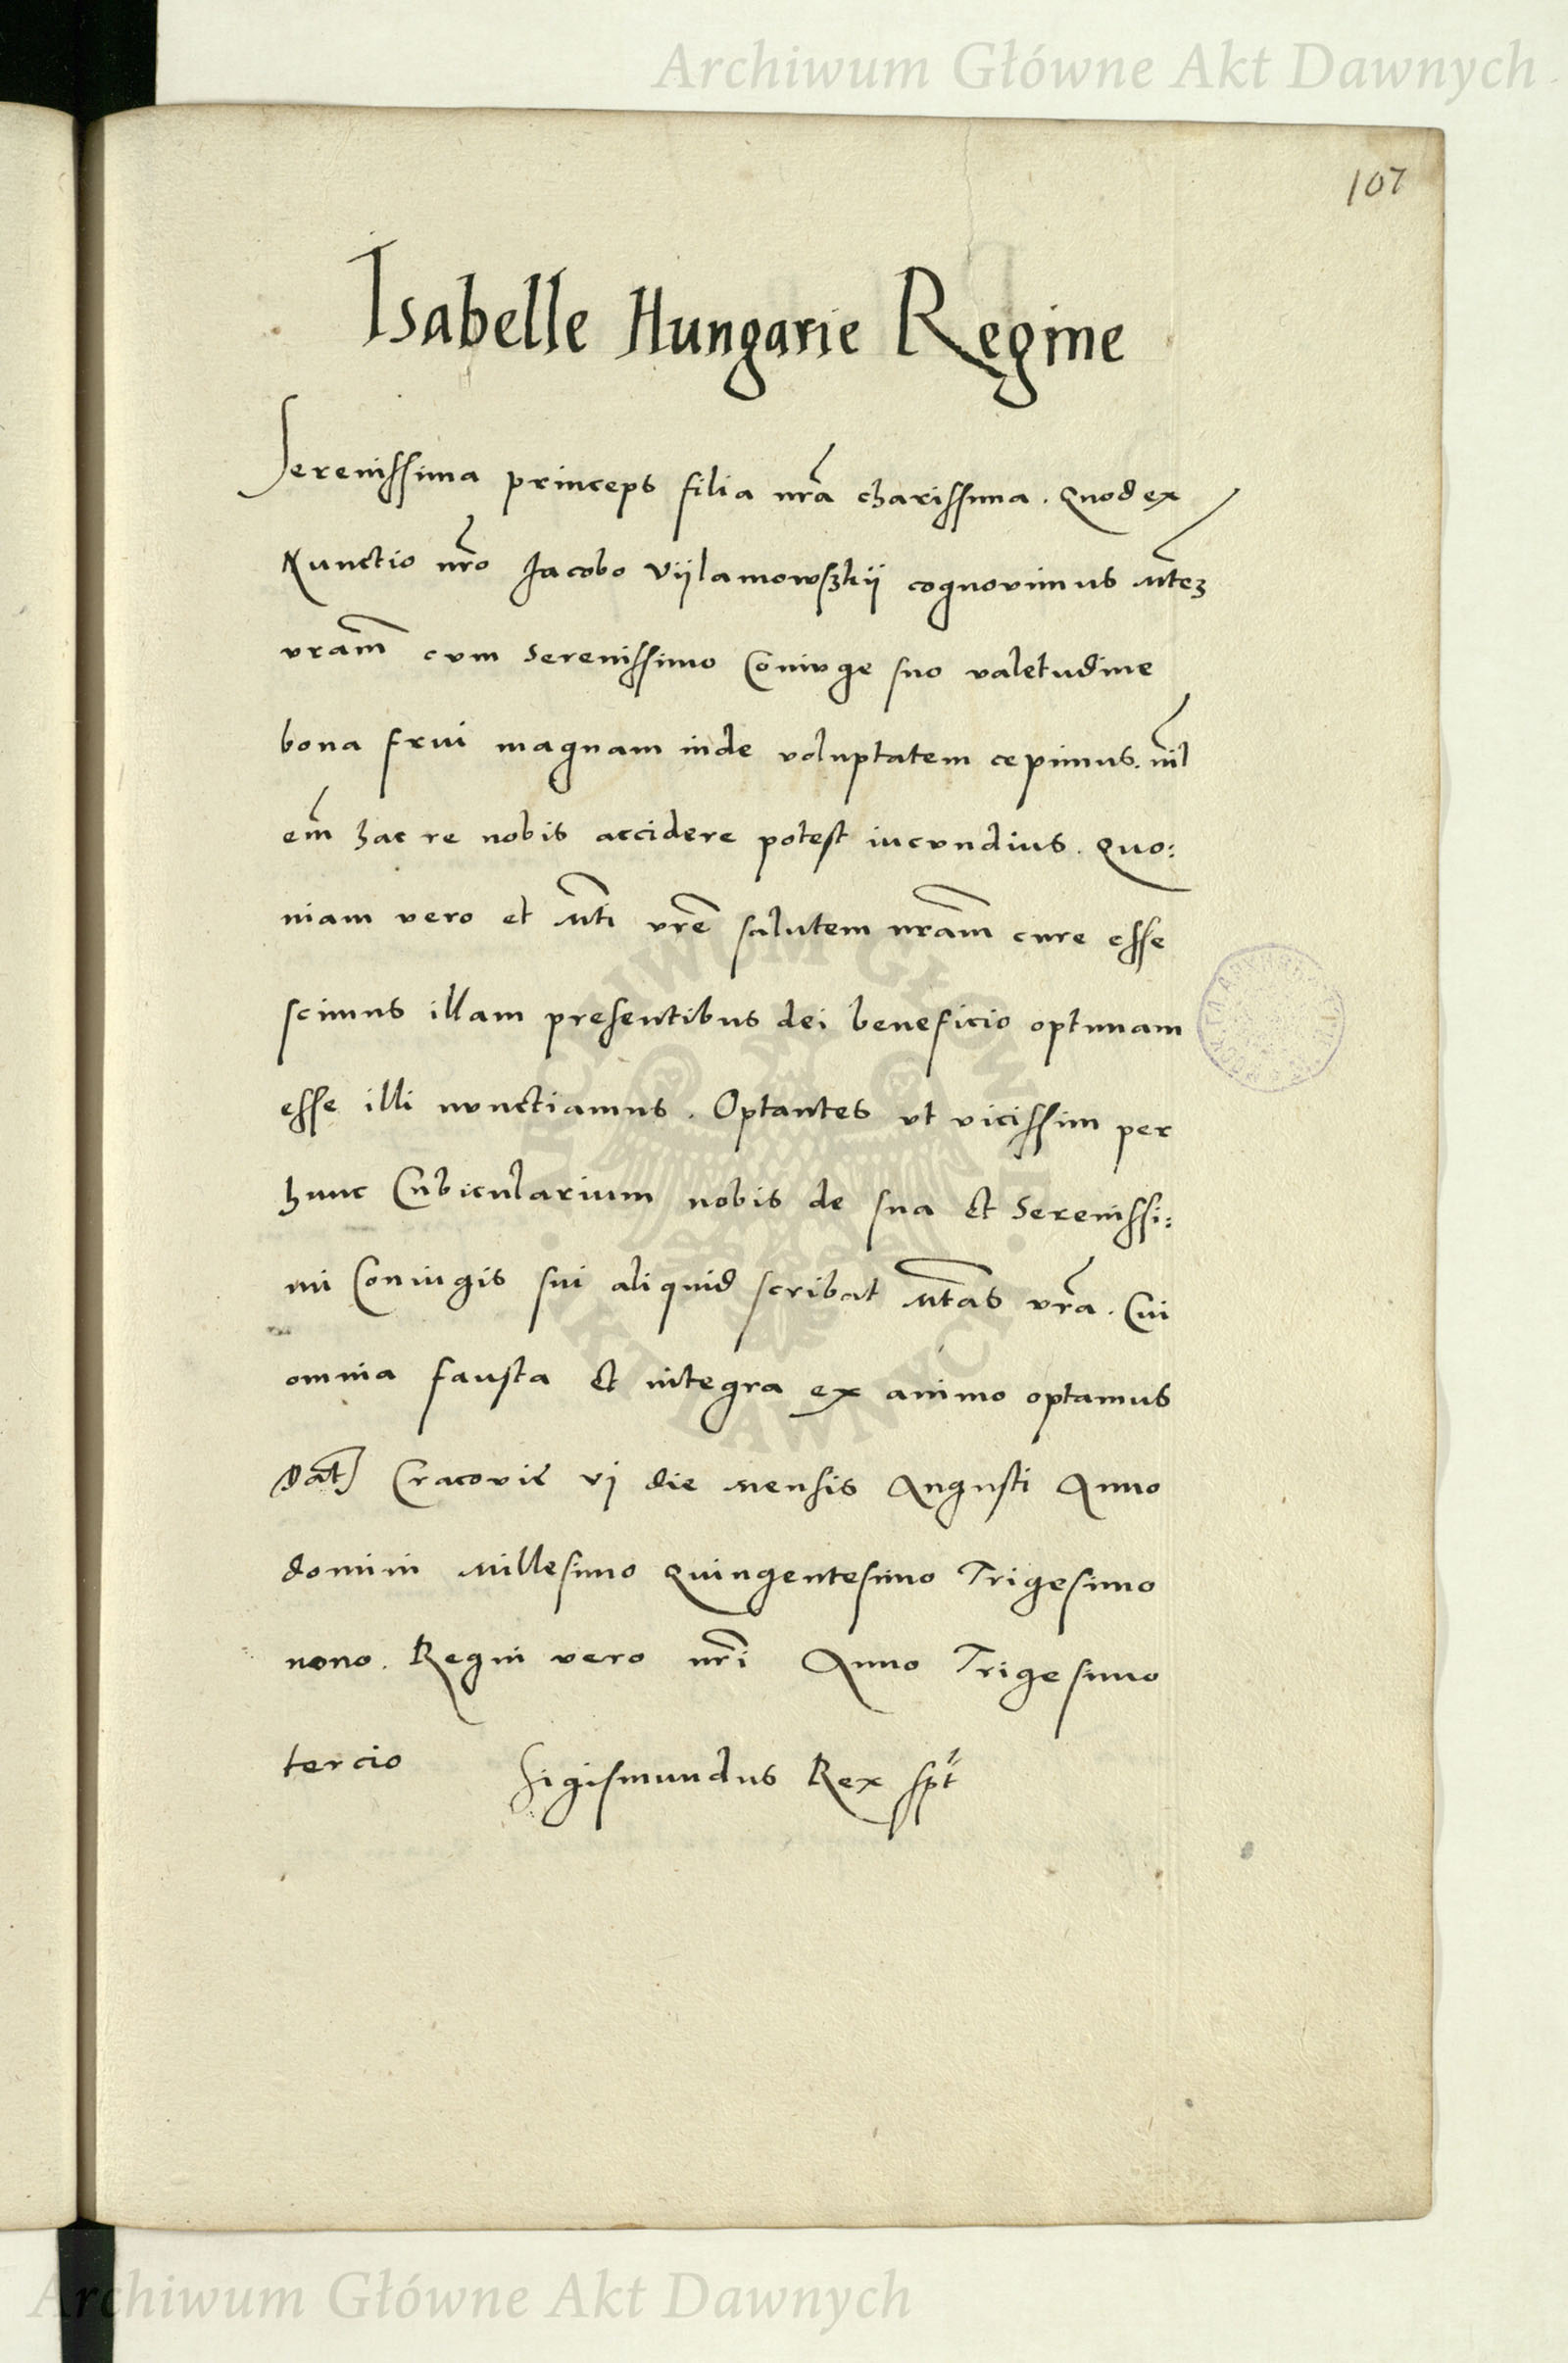 Archiwum Główne Akt Dawnych
107
Isabelle Hungarie Regine
Serenissima princeps filia nra charissima. Quod ex
Nunctio nro Jacobo Vijlamowszkij cognovimus Mtez
vram cvm Serenissimo Conivge suo valetudine
bona frui magnam inde voluptatem cepimus. nil
em hac re nobis accidere potest iucvndius. Quo:
niam vero et Mti vre salutem nram cure esse
scimus illam presentibus dei beneficio optimam
esse illi nvnctiamus. Optantes vt vicissim per
hunc Cubicularium nobis de sua et Serenissi:
mi Coniugis sui aliquid scribat Mtas vra. Cui
omnia fausta et integra ex animo optamus
Dat Cracovie vj die mensis Augusti Anno
domini Millesimo Quingentesimo Trigesimo
nono. Regni vero nri Anno Trigesimo
tercio Sigismundus Rex spt
ARCHIWUM GŁÓWNE AKT DAWNYCH
Archiwum Główne Akt Dawnych